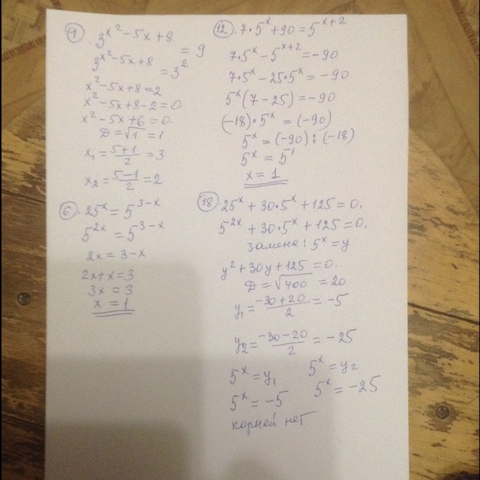 9) 3^(x²-5x+8) = 9
3^(x²-5x+8) = 3²
x²-5x+8=2
x²-5x+8-2=0
x²-5x+6=0.
D=√1=1
x₁=(5+1)/2=3
x₂=(5-1)/2=2
6) 25^x=5^(3-x)
5^(2x)=5^(3-x)
2x=3-x
2x+x=3
3x=3
x=1
12) 7•5^x+90=5^(x+2)
7•5^x-5^(x+2)=-90
7•5^x-25•5^x=-90
5^x(7-25)=-90
(-18)•5^x=(-90)
5^x=(-90):(-18)
5^x=5¹
x=1
18) 25^x+30•5^x+125=0.
5^(2x)+30•5^x+125=0.
замена: 5^x=y
y²+30y+125=0.
D=√400=20
y₁=(-30+20)/2=-5
y₂=(-30-20)/2=-25
5^x=y₁ 5^x=y₂
5^x=-5 5^x=-25
корней нет